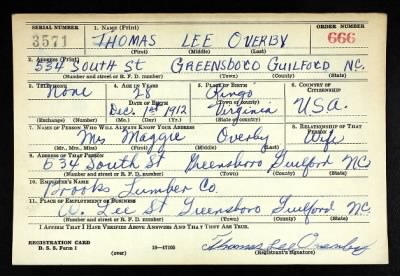 SERIAL NUMBER 1. NAME (Print) ORDER NUMBER
3571 THOMAS LEE OVERBY 666
(First) (Middle) (Last)
2. ADDRESS (Print)
534 SOUTH ST GREENSBORO GUILFORD NC.
(Number and street or R. F. D. number) (Town) (County) (State)
3. TELEPHONE 4. AGE IN YEARS 5. PLACE OF BIRTH 6. COUNTRY OF CITIZENSHIP
None 28 Ringo
DATE OF BIRTH (Town or county)
Dec. 1st 1912 Virginia U.S.A.
(Exchange) (Number) (Mo.) (Day) (Yr.) (State or country)
7. NAME OF PERSON WHO WILL ALWAYS KNOW YOUR ADDRESS 8. RELATIONSHIP OF THAT PERSON
Mrs Maggie Overby Wife
(Mr., Mrs., Miss) (First) (Middle) (Last)
9. ADDRESS OF THAT PERSON
534 South St Greensboro Guilford NC
(Number and street or R. F. D. number) (Town) (County) (State)
10. EMPLOYER'S NAME
Brooks Lumber Co.
11. PLACE OF EMPLOYMENT OR BUSINESS
W. Lee St Greensboro Guilford NC.
(Number and street or R. F. D. number) (Town) (County) (State)
I AFFIRM THAT I HAVE VERIFIED ABOVE ANSWERS AND THAT THEY ARE TRUE.
REGISTRATION CARD
D. S. S. Form 1 16—17105 Thomas Lee Overby
(over) (Registrant's signature)